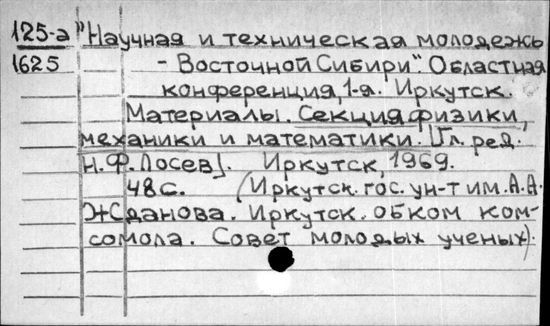 125-а "Научная и техническая молодежь
1625 - Восточной Сибири". Областная
конференция, 1-я. Иркутск.
Материалы. Секция физики,
механики и математики. [Гл. ред.
Н.Ф. Лосев]. Иркутск, 1969.
48 с. (Иркутск. гос. ун-т им. А.А.
Жданова. Иркутск. обком ком-
сомола. Совет молодых ученых).